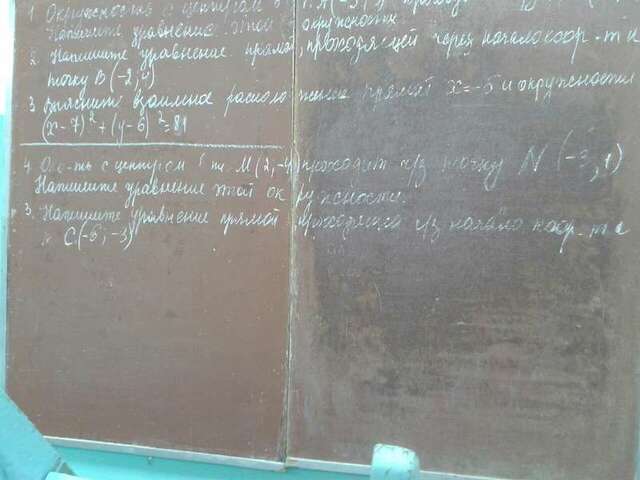 1. Окружность с центром в т. А(-3, 1)
Напишите уравнение этой окружности
2 Напишите уравнение прямой, проходящей через начало коор. т и
точку В (-2, 4)
3 Выясните взаимное расположение прямой х=-5 и окружности
(х-7)²+(y-6)²=81
4. Окр-ть с центром в т. М(2,-4) проходит ч/з точку N (-3, 1)
Напишите уравнение этой окружности.
3. Напишите уравнение прямой проходящей ч/з начало коор. т и
С(-6; -3)